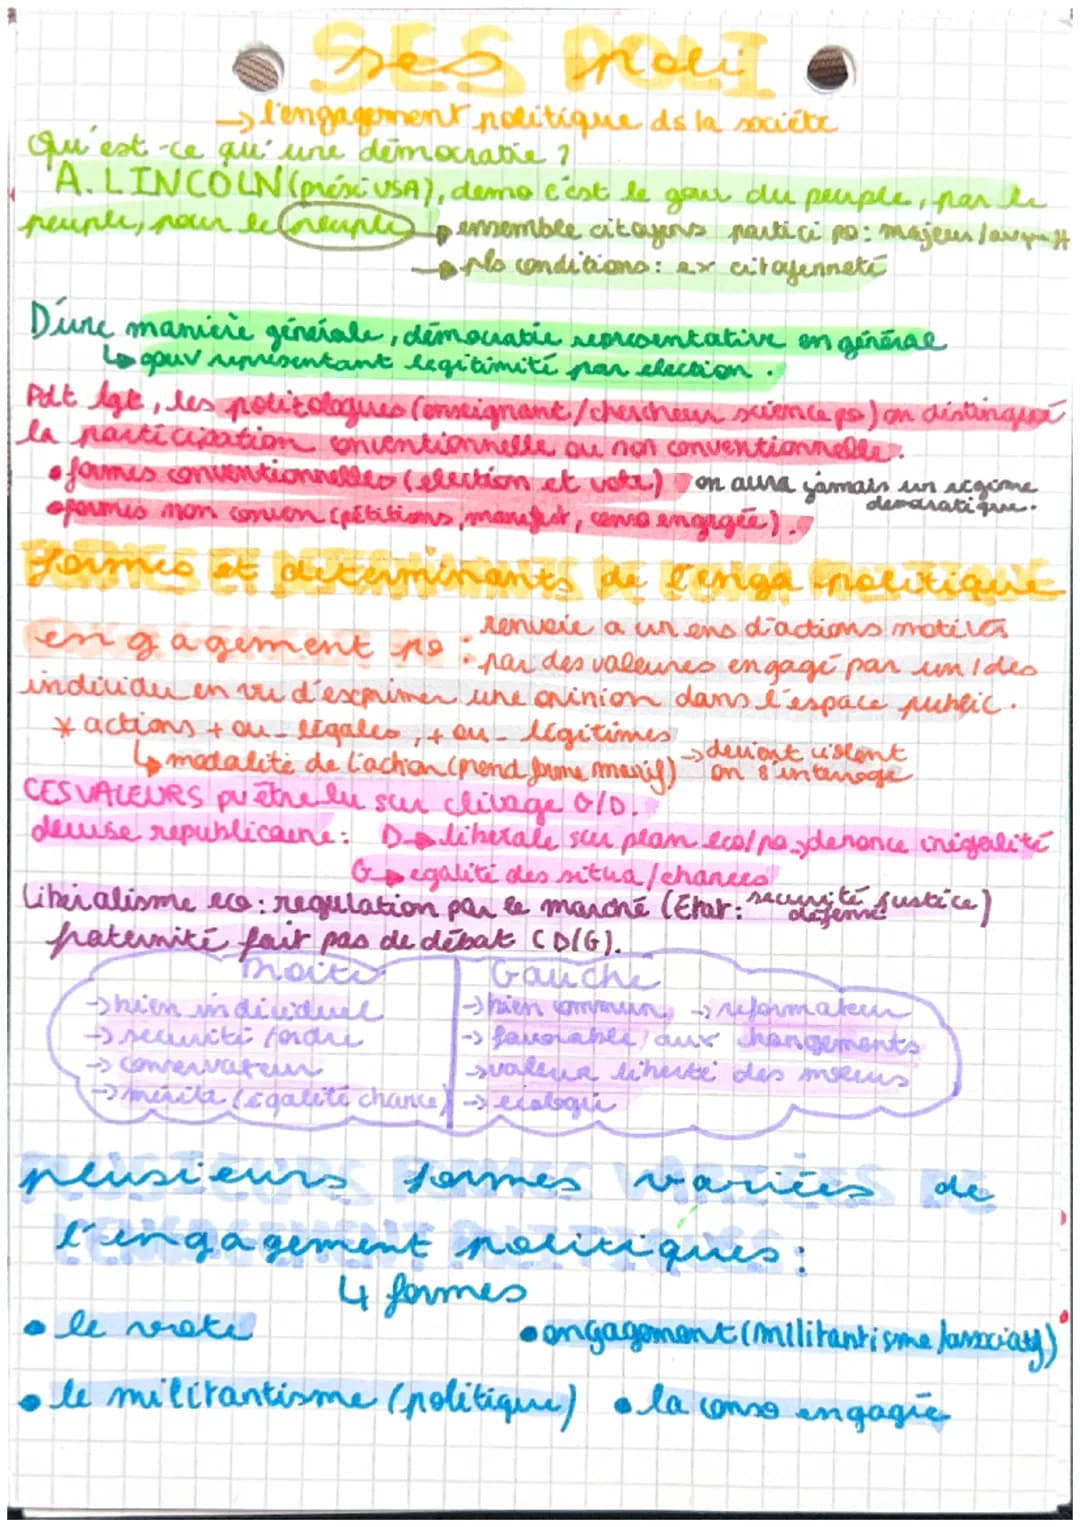 SES POLI
→ l'engagement politique ds la société
Qu'est-ce qu'une démocratie ?
A. LINCOLN (prési USA), démo c'est le gouv du peuple, par le
peuple, pour le peuple → ensemble citoyens partici po: majeur /
→ pls conditions: ex citoyenneté
D'une manière générale, démocratie représentative en général
↳ gouv représentant légitimité par election.
Pdt lgt, les politologues (enseignant/chercheur science po) on distingué
la participation conventionnelle ou non conventionnelle.
• formes conventionnelles (election et vote) on aura jamais un régime
démocratique.
• formes non conven (pétitions, manifest, conso engagée).
formes et determinants de l'enga politique
engagement po : renvoie a un ens d'actions motivés
par des valeures engagé par un/des
individu en vu d'exprimer une opinion dans l'espace public.
* actions + ou - légales, + ou - légitimes
↳ modalité de l'action (prend forme manif) → devient violent
on s'interroge
CES VALEURS pv être lu sur clivage G/D.
devise republicaine: D → liberale sur plan eco/po, dénonce inégalité
G → egalité des situa/chances
Libéralisme eco: regulation par le marché (Etat: securité justice)
défense
fraternité fait pas de débat (D/G).
Droite Gauche
→ bien individuel → bien commun → reformateur
→ securité /ordre → favorable aux changements
→ conservateur → valeur liberté des moeurs
→ mérite (égalité chance) → écologie
plusieurs formes variées de
l'engagement politiques :
4 formes
• le vote • engagement (militantisme/associatif)
• le militantisme (politique) • la conso engagée